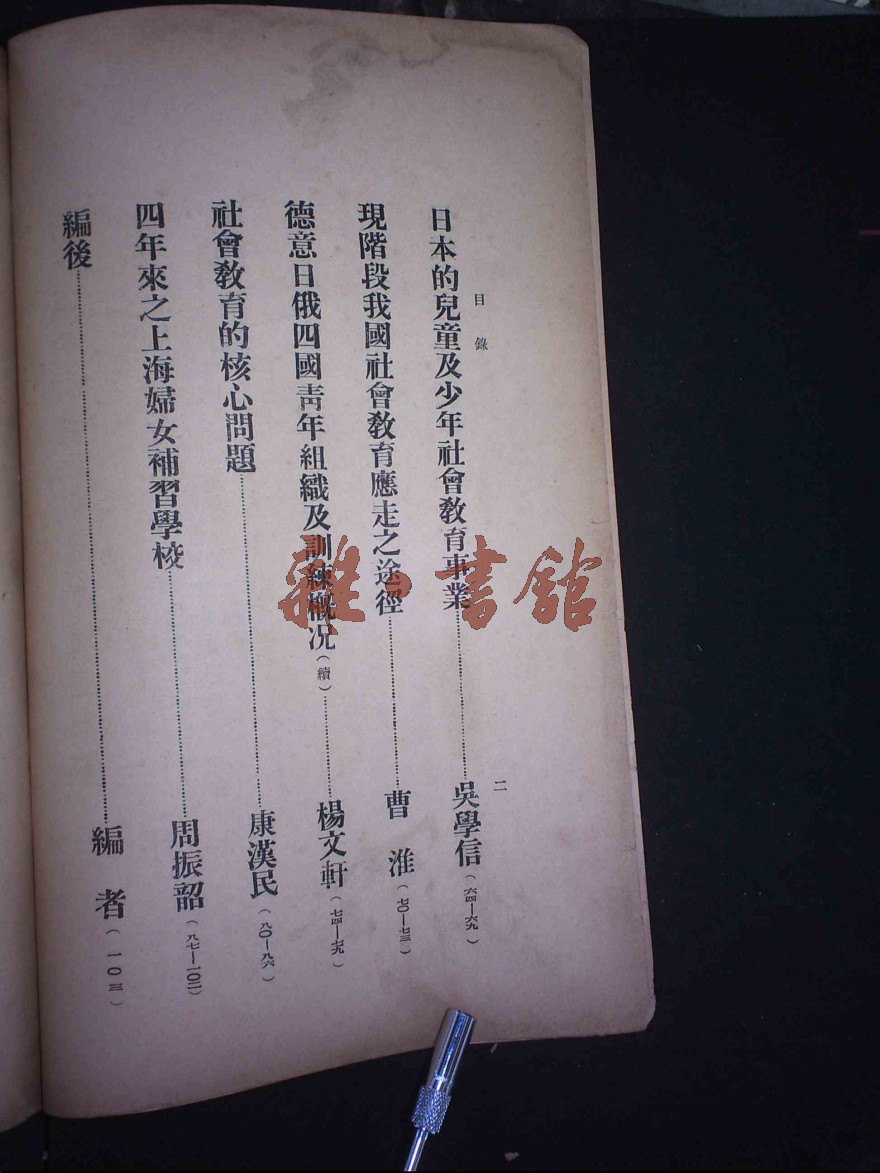 目錄
二
日本的兒童及少年社會教育事業……吳學信(六四—六九)
現階段我國社會教育應走之途徑……曹淮(七〇—七三)
德意日俄四國靑年組織及訓練概况(續)……楊文軒(七四—七九)
社會教育的核心問題……康漢民(八〇—八六)
四年來之上海婦女補習學校……周振韶(八七—一〇二)
編後……編者(一〇三)
雜·書館